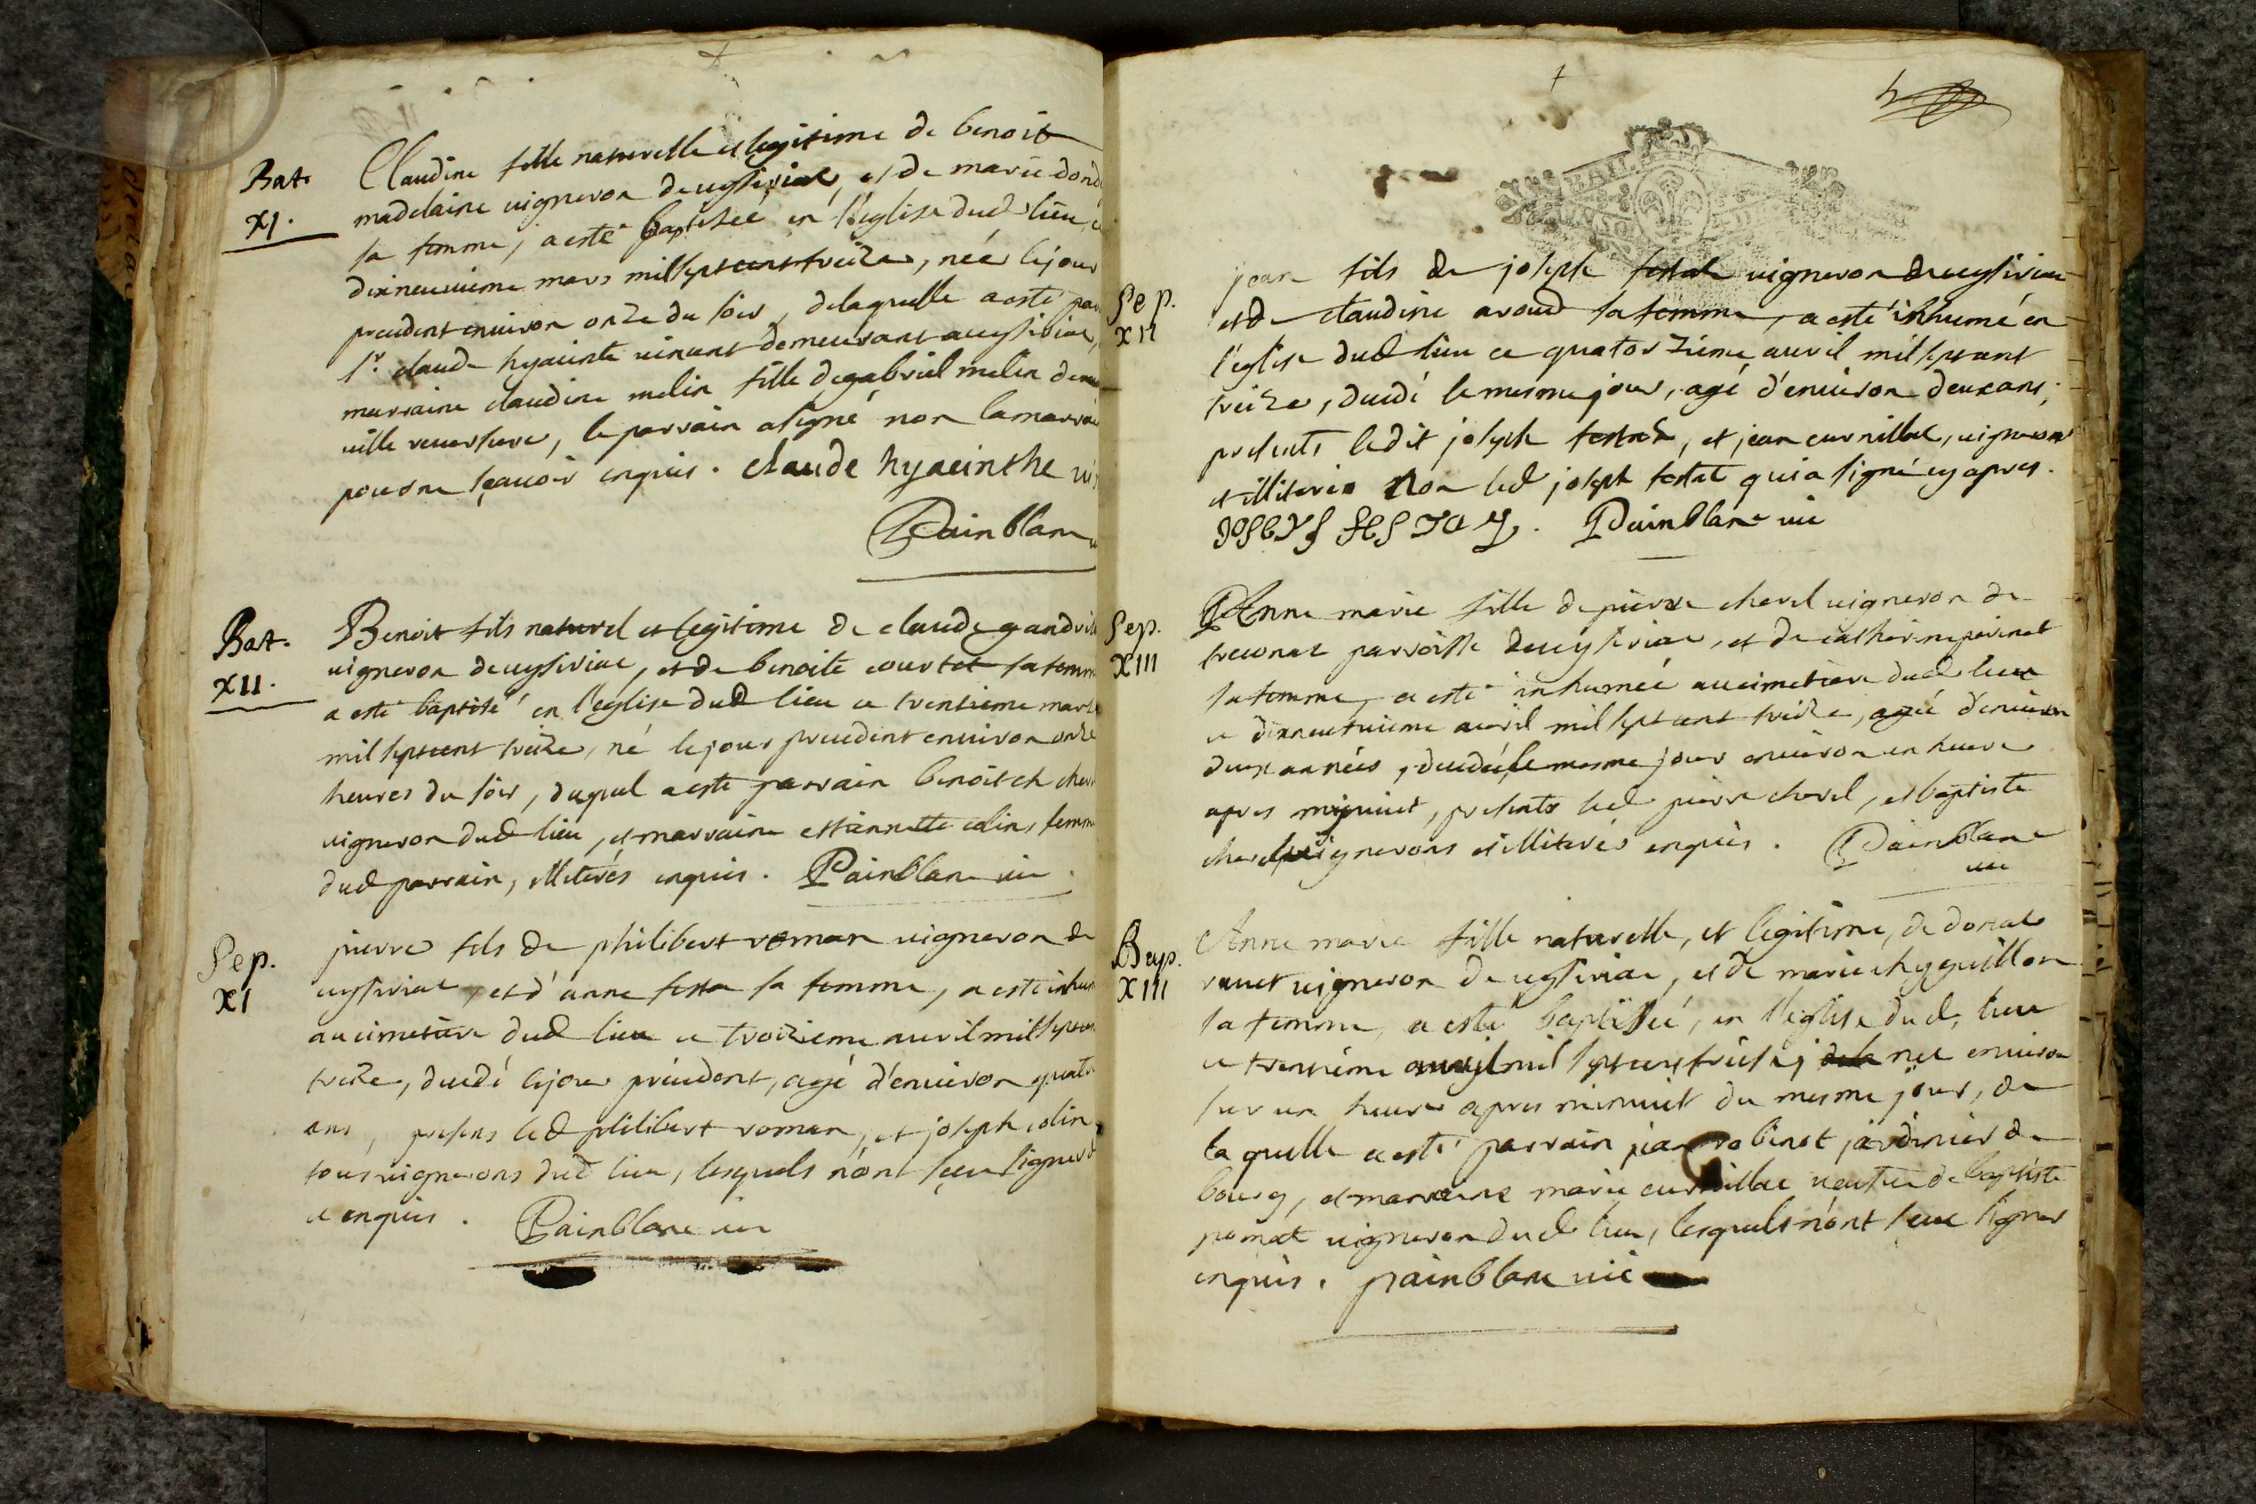 Bat.
XI.
Claudine fille naturelle et legitime de benoit
madelaine vigneron de ceyseriac, et de marie
sa femme, a esté baptisée en l'eglise dud lieu,
dixneuvieme mars mil sept cent treize, née le jour
precedent environ onze du soir, de laquelle a esté
sr. claude hyacinte vincent demeurant a ceyseriac,
marraine claudine melin fille de gabriel melin
ville reversure, le parrain a signé non la
pour ne sçavoir enquis. claude hyacinthe
Painblanc
Bat.
XII.
Benoit fils naturel et legitime de claude
vigneron de ceyseriac, et de benoite courtet sa femme
a esté baptisé en l'eglise dud lieu ce trentieme mars
mil sept cent treize, né le jour precedent environ onze
heures du soir, duquel a esté parrain benoit
vigneron dud lieu, et marraine estiennette colin, femme
dud parrain, illiterés enquis. Painblanc vic
Sep.
XI
pierre fils de philibert roman vigneron de
ceyseriac, et d'anne testa sa femme, a esté
au cimetiere dud lieu ce troizieme avril mil sept cent
treize, decedé le jour precedent, agé d'environ quatre
ans, presens led philibert roman, et joseph colin,
tous vignerons dud lieu, lesquels n'ont sceu signer
enquis. Painblanc vic
Sep.
XII
jean fils de joseph vigneron de ceyseriac
et de claudine avoud sa femme, a esté inhumé en
l'eglise dud lieu ce quatorzieme avril mil sept cent
treize, decedé le mesme jour, agé d'environ deux ans,
presents ledit joseph, et jean curnillac, vignerons
et illiterés non led joseph testat qui a signé cy apres.
Painblanc vic
Sep.
XIII
Anne marie fille de pierre charel vigneron de
treconas parroisse de ceyseriac, et de catherine perinet
sa femme, a esté inhumée au cimetiere dud lieu
ce dixneufvieme avril mil sept cent treize, agée d'environ
deux années, decedée le mesme jour environ un heure
apres minuict, presents led pierre charel, et baptiste
charel vignerons et illiterés enquis. Painblanc
vic
Bap.
XIII
Anne marie fille naturelle, et legitime, de donat
ravet vigneron de ceyseriac, et de marie
sa femme, a esté baptisée, en l'eglise dud, lieu
ce trentieme avril mil sept cent treize, née environ
sur un heure apres minuict du mesme jour, de
laquelle a esté parrain jean robinet jardinier de
bourg, et marraine marie curnillac de baptiste
vigneron dud lieu, lesquels n'ont sceu signer
enquis. painblanc vic